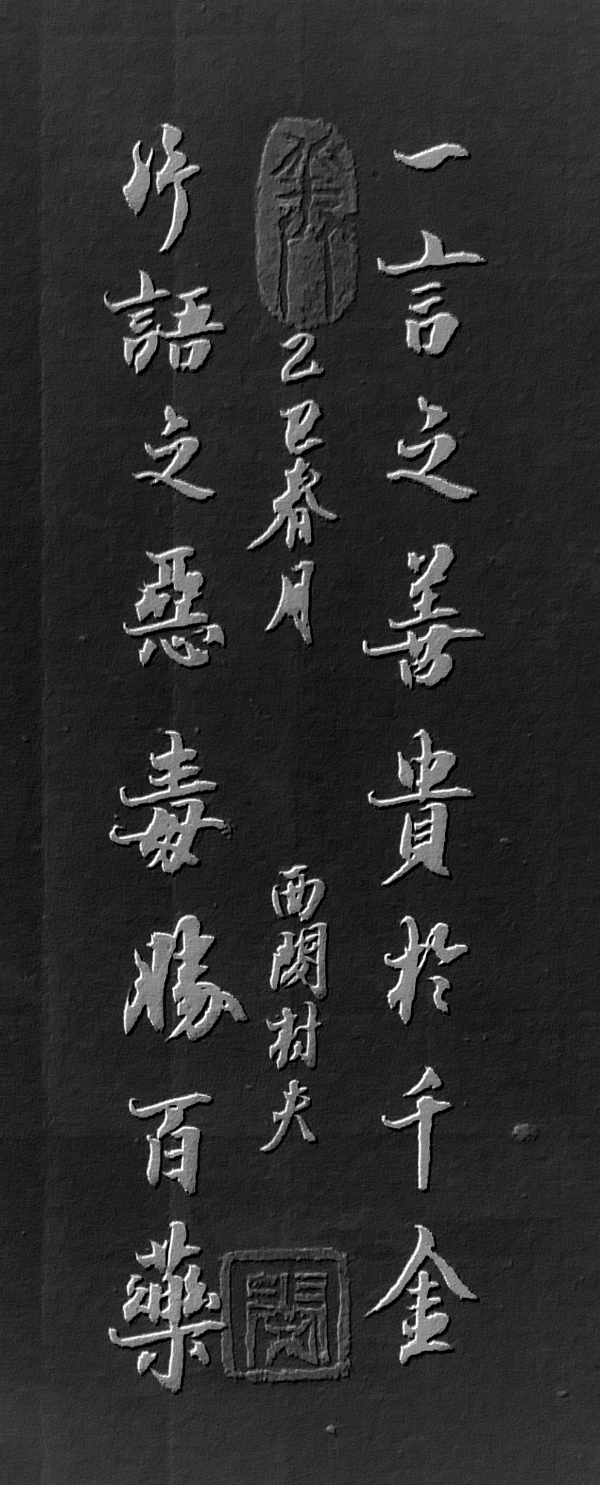 一言之善貴於千金
乙巳春月
西村夫
片語之惡毒勝百藥